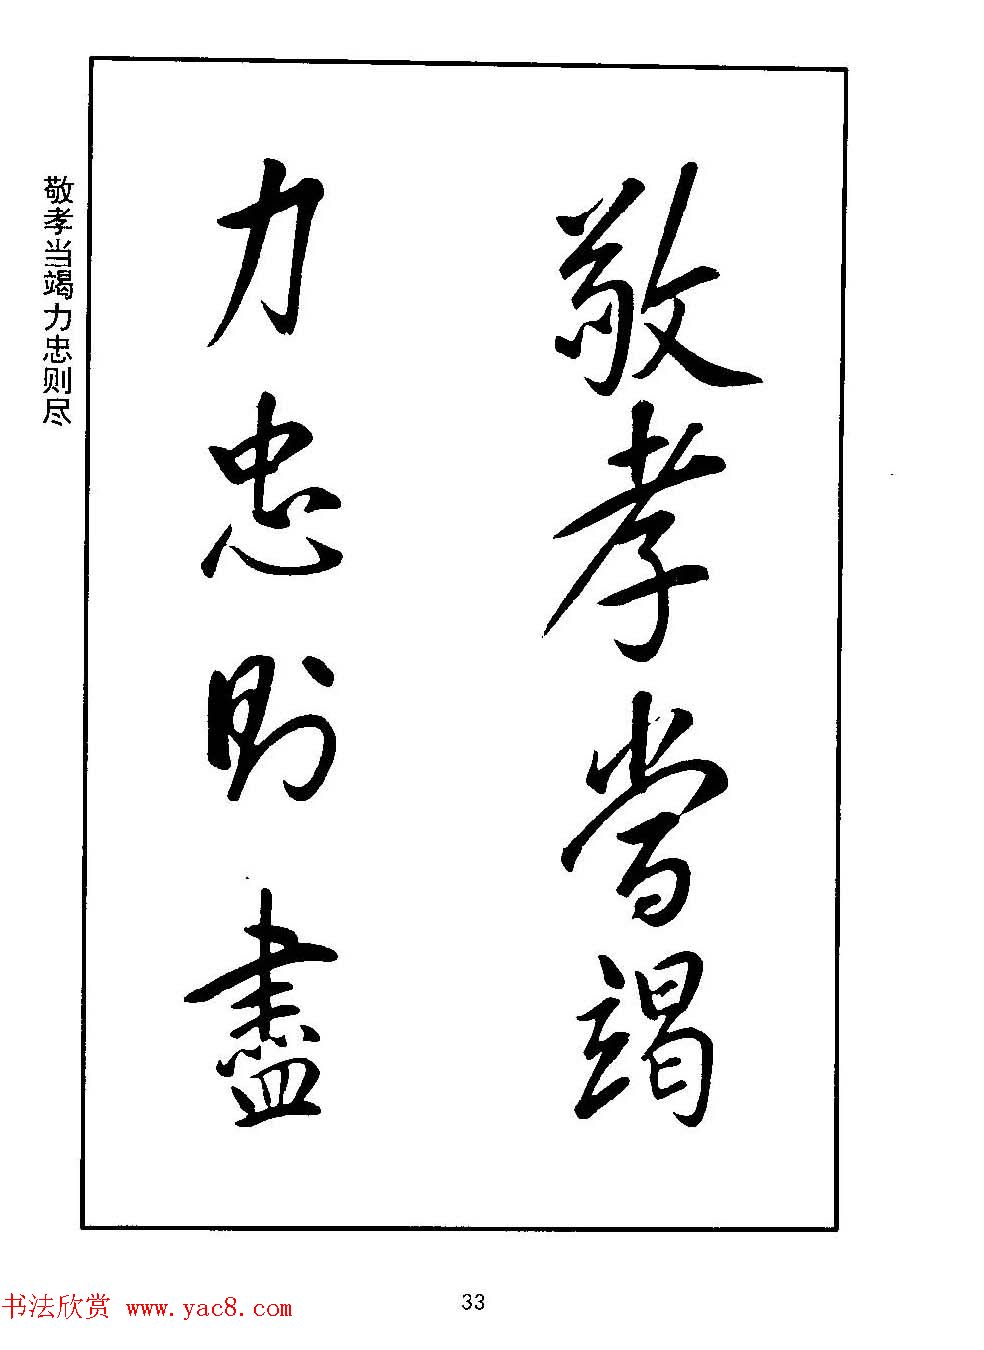 敬孝當竭
力忠則盡
敬孝当竭力忠则尽
33
书法欣赏 www.yac8.com